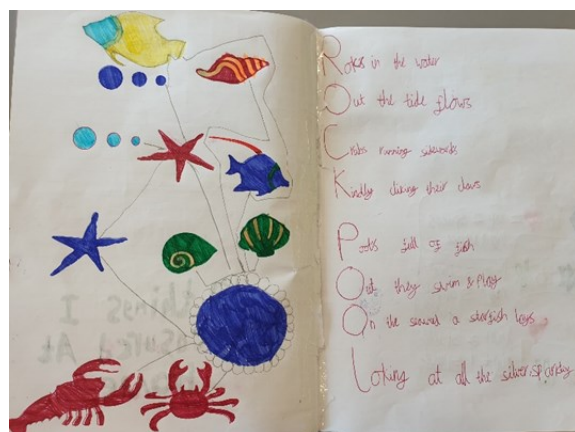 Rocks in the water
Out the tide flows
Crabs running sidewards
Kindly clicking their claws
Pools full of fish
Out they swim & play
On the seaweed a starfish lays
Looking at all the silver sparkly
things I
At